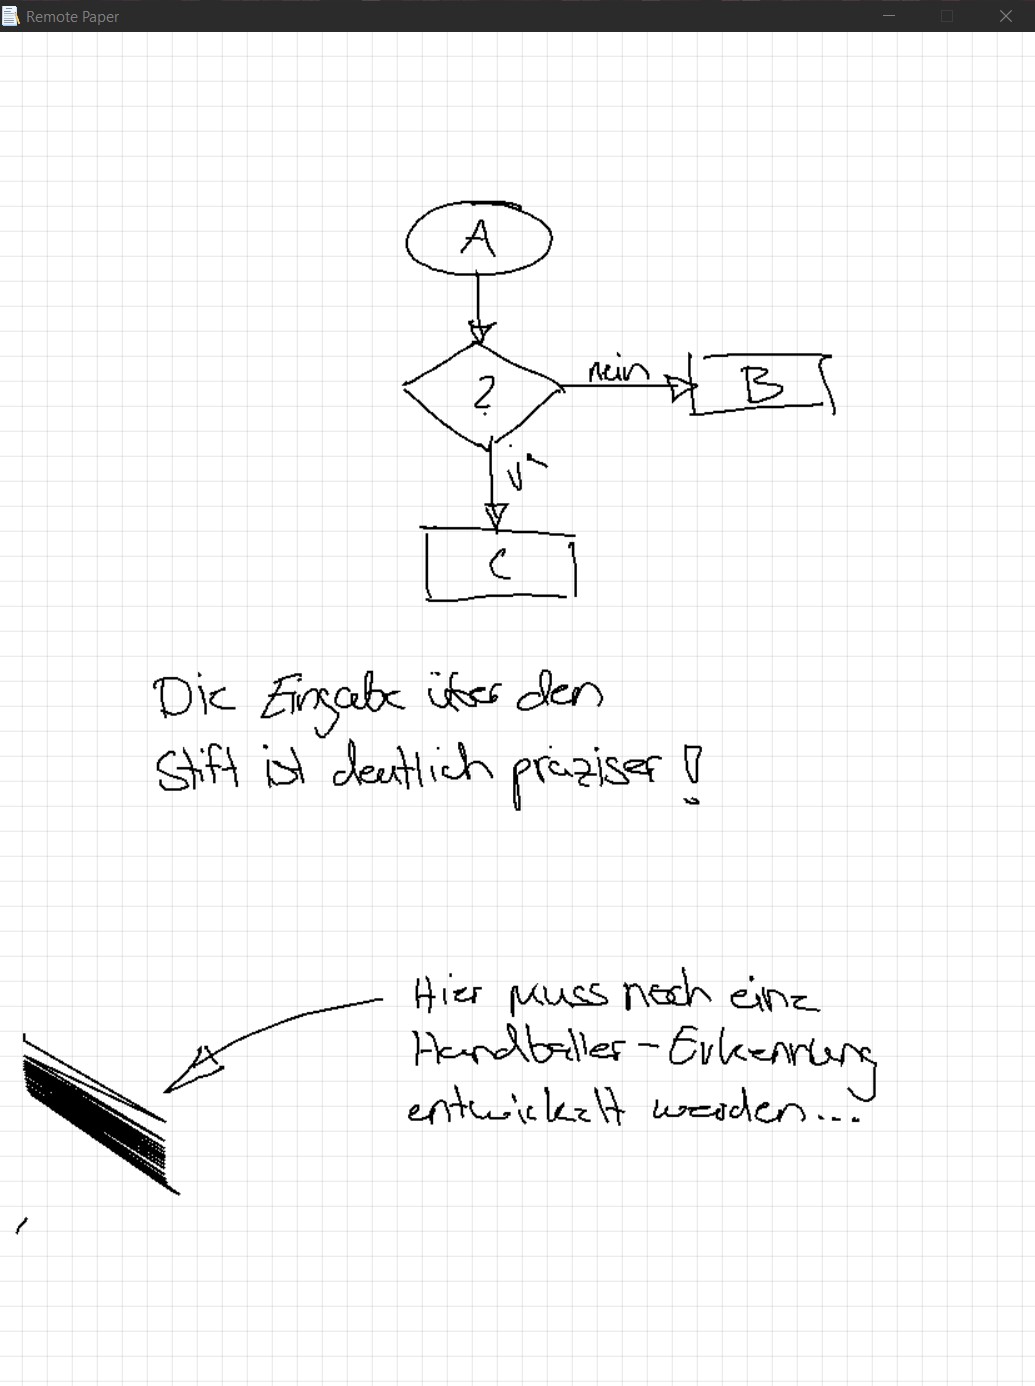 Remote Paper
A
?
nein
B
C
Die Eingabe über den
Stift ist deutlich präziser!
Hier muss noch eine
Handballer-Erkennung
entwickelt werden...